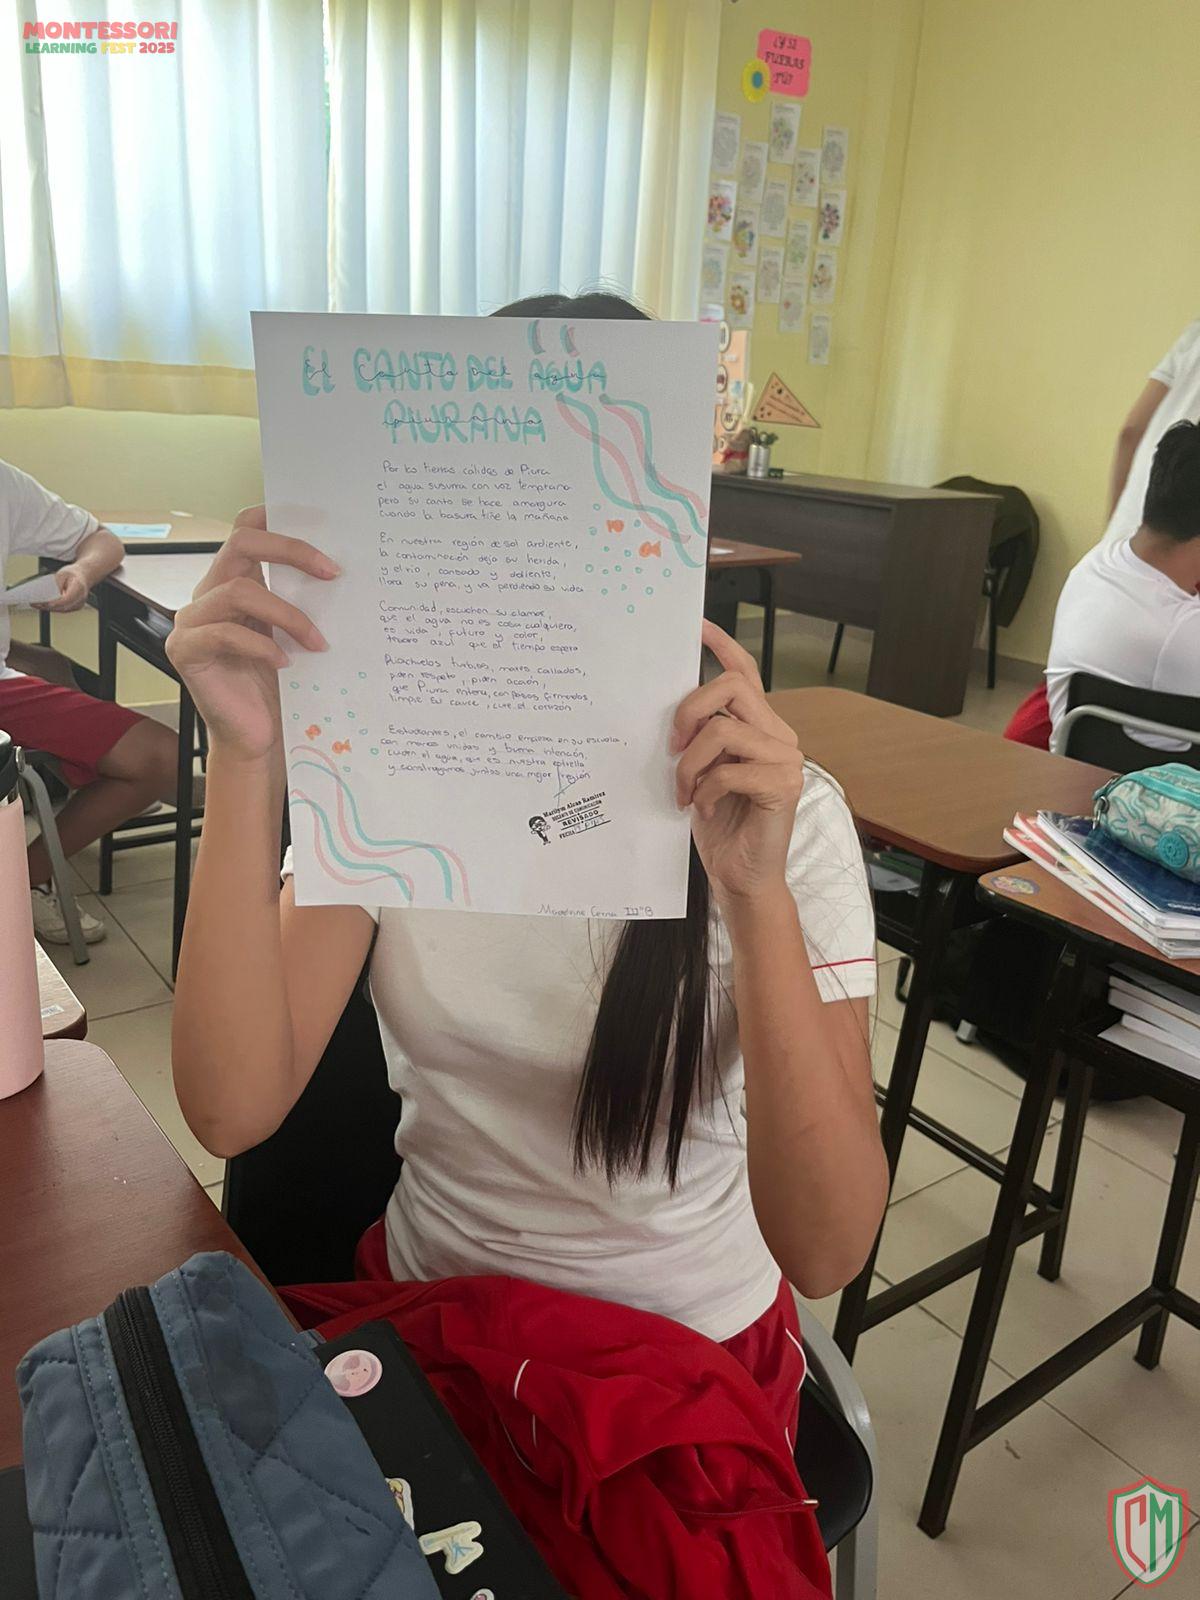 MONTESSORI
LEARNING FEST 2025
¿Y SI
FUERAS
TÚ?
EL CANTO DEL AGUA
El Canto del agua
PIURANA
piurana
Por las tierras cálidas de Piura
el agua susurra con voz temprana
pero su canto se hace amargura
cuando la basura tiñe la mañana
En nuestra región de sol ardiente,
la contaminación deja su herida,
y el río, cansado y doliente,
llora su pena, y va perdiendo su vida
Comunidad, escuchen su clamor,
que el agua no es cosa cualquiera,
es vida, futuro y color,
tesoro azul que el tiempo espera
Riachuelos turbios, mares callados,
piden respeto, piden acción,
que Piura entera, con pasos firmados,
limpie su cauce, cure el corazón
Estudiantes, el cambio empieza en su escuela,
con manos unidas y buena intención,
cuiden el agua, que es nuestra estrella
y construyamos juntos una mejor región
Marilym Alcas Ramirez
DOCENTE DE COMUNICACIÓN
REVISADO
FECHA
Cerna III"B
CM